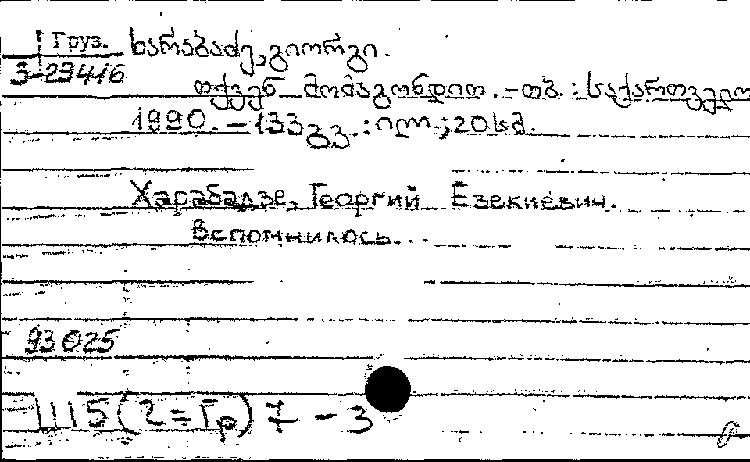 Груз. ხარაბაძე, გიორგი.
3-23416
თქვენ მომაგონდით. – თბ. : საქართველო
1990. – 133 გვ. : ილ. ; 20 სმ.
Харабадзе, Георгий Езекиевич.
Вспомнилось...
93025
Ш5(2=Гр)7-3